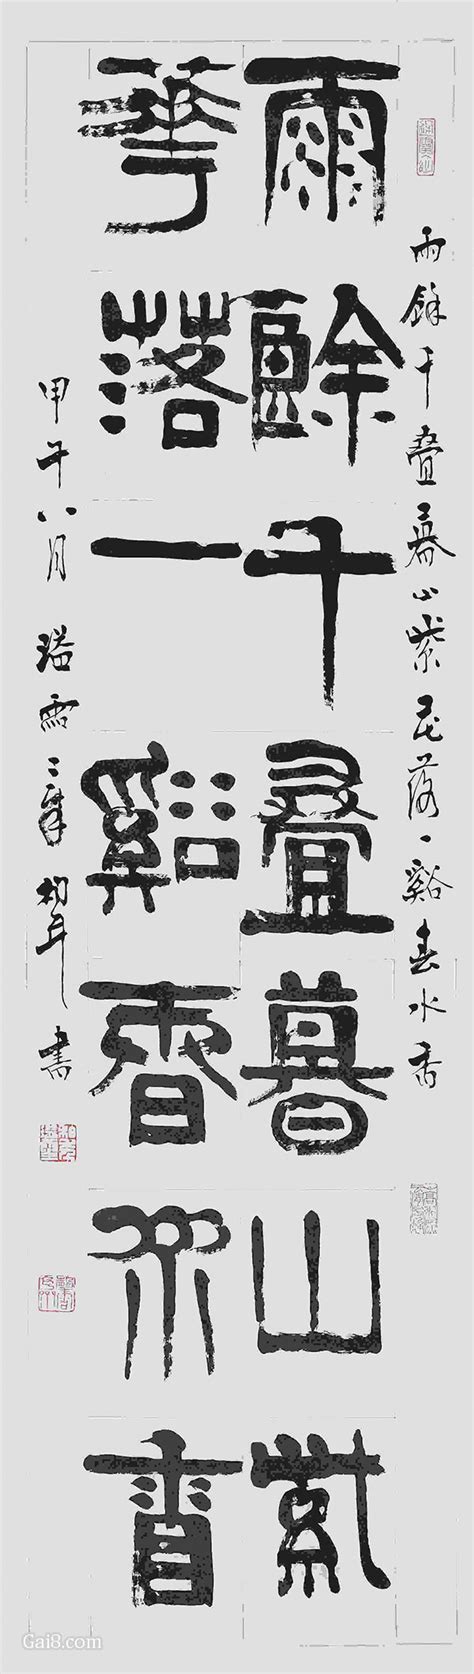 雨餘千疊暮山紫花落一谿春水香
雨餘千疊暮山紫
華落一谿春水香
甲午八月 雪 書
Gai8.com